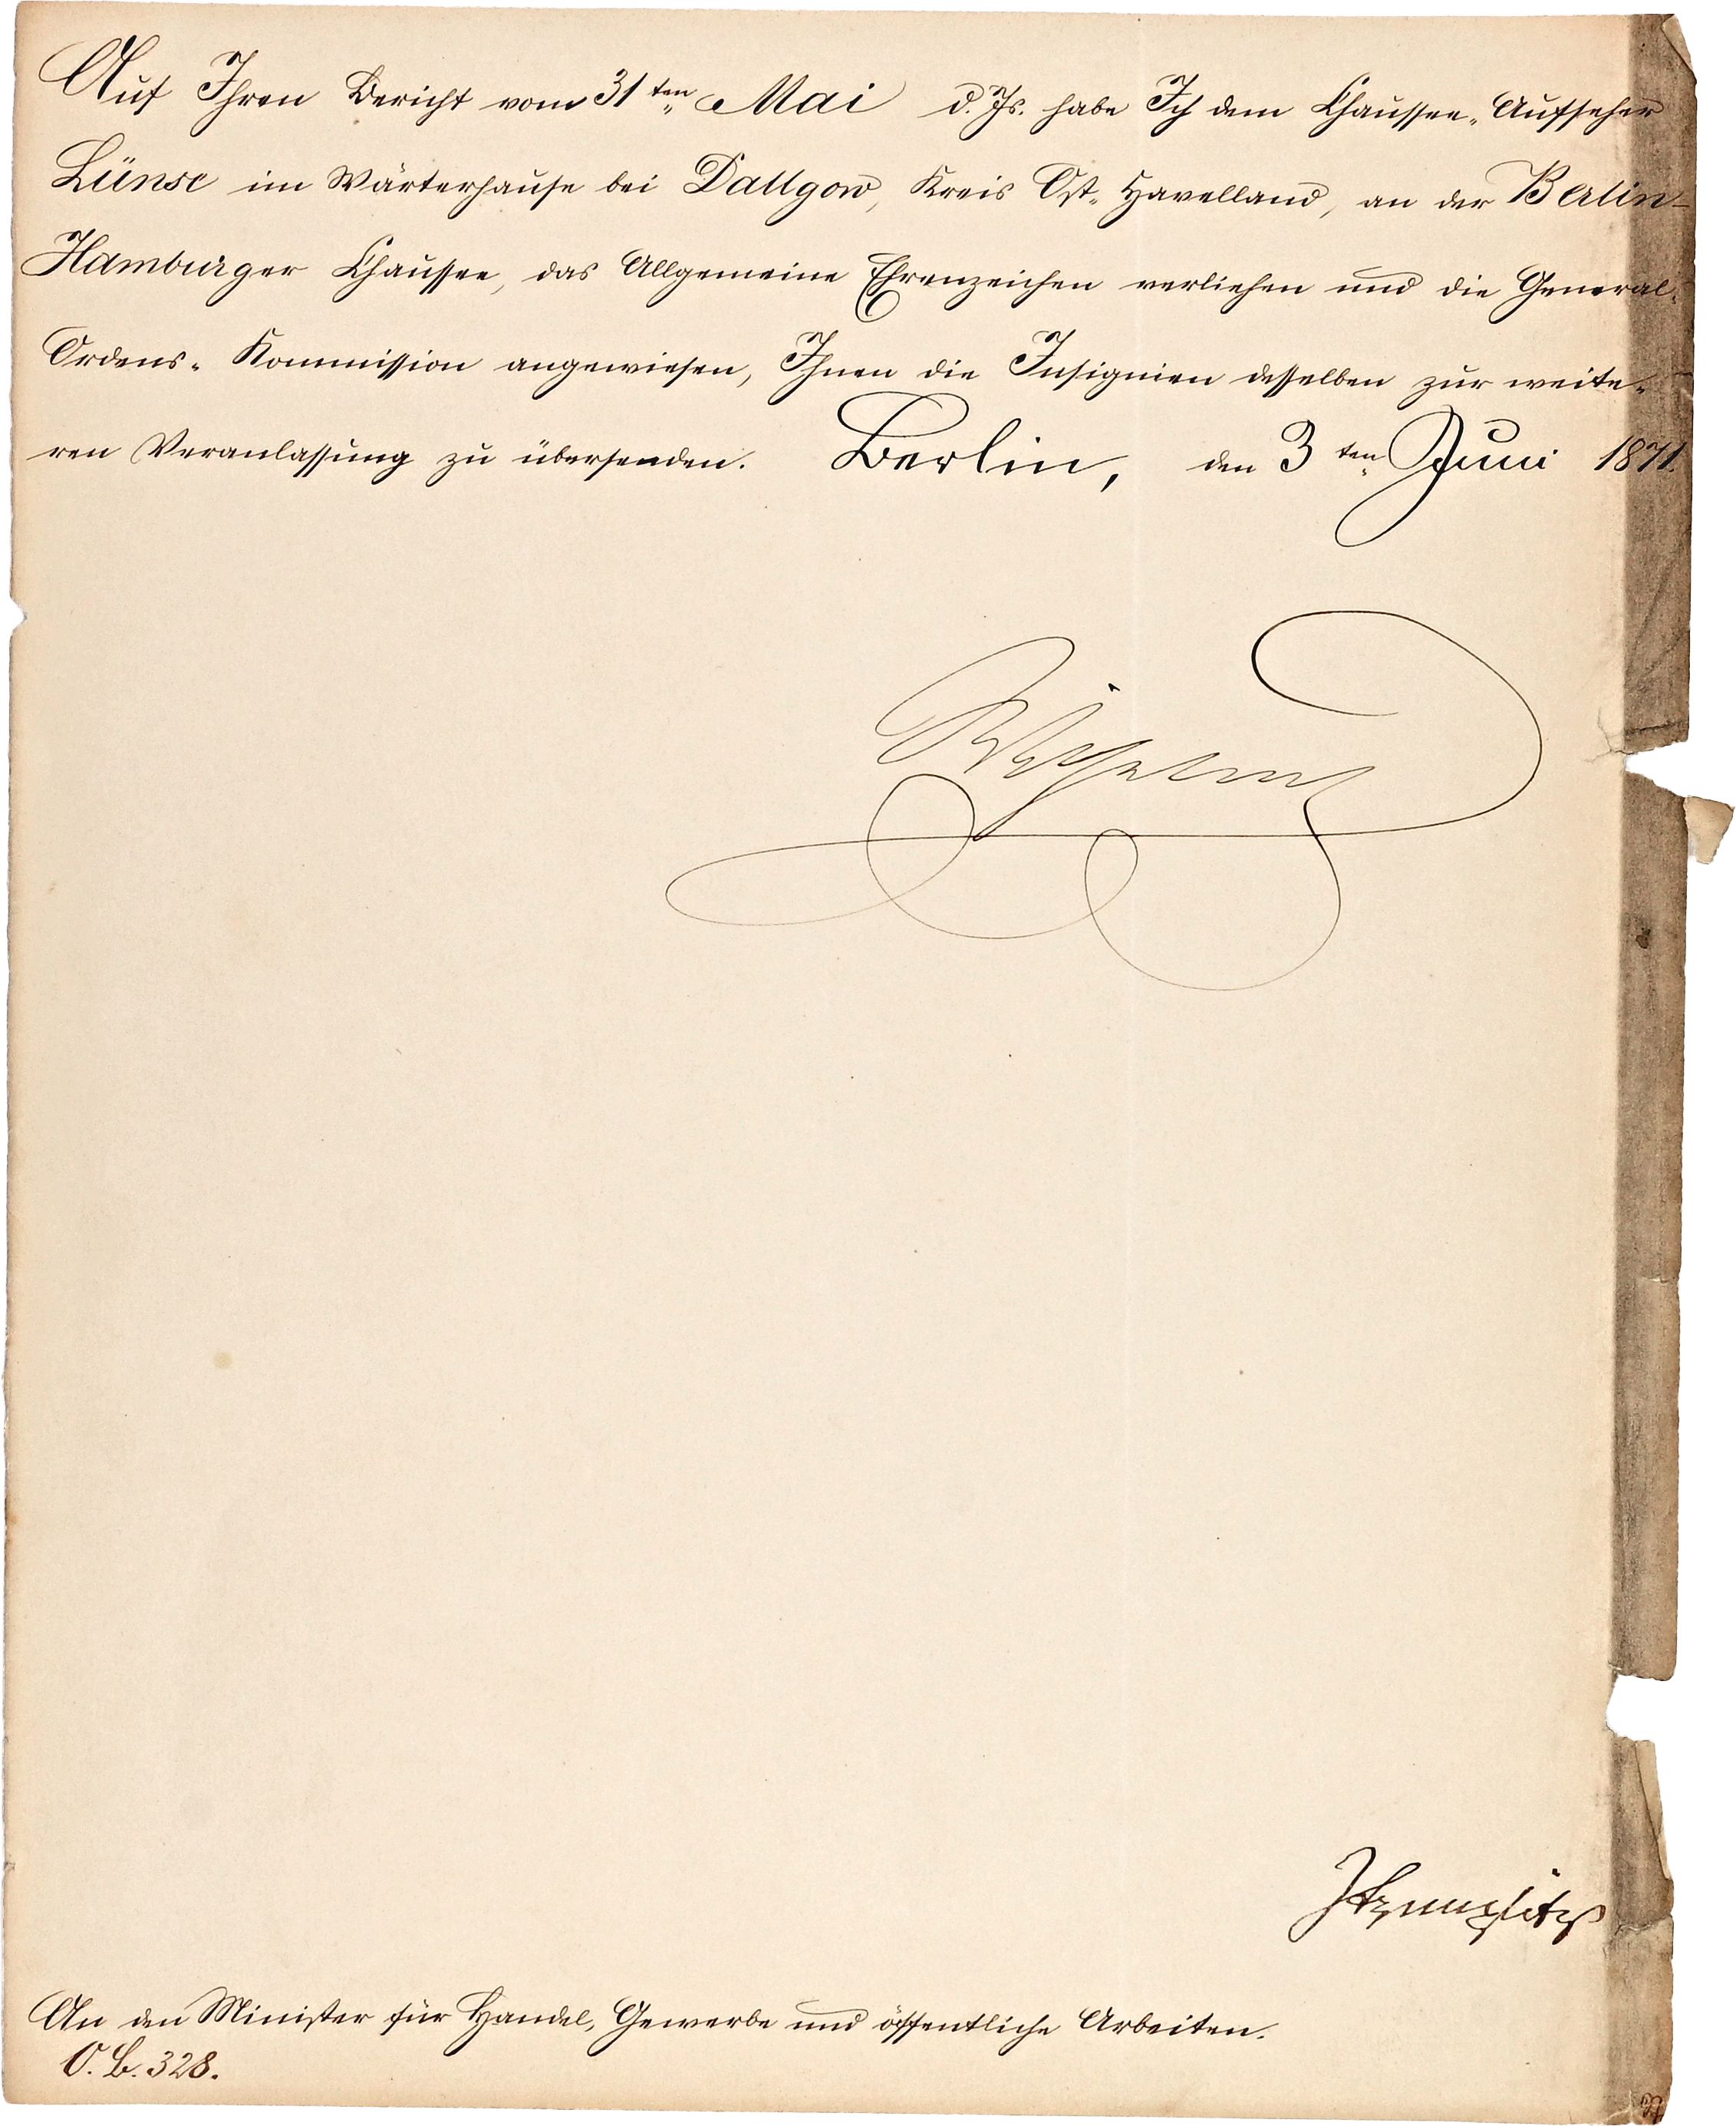 Auf Ihren Bericht vom 31ten Mai d. Js. habe Ich dem Chaussee-Aufseher
Lünse im Wärterhause bei Dallgow, Kreis Ost-Havelland, an der Berlin-
Hamburger Chaussee, das Allgemeine Ehrenzeichen verliehen und die General-
Ordens-Kommission angewiesen, Ihnen die Insignien desselben zur weite-
ren Veranlassung zu übersenden. Berlin, den 3ten Juni 1871.
Wilhelm
Itzenplitz
An den Minister für Handel, Gewerbe und öffentliche Arbeiten.
O. B. 328.